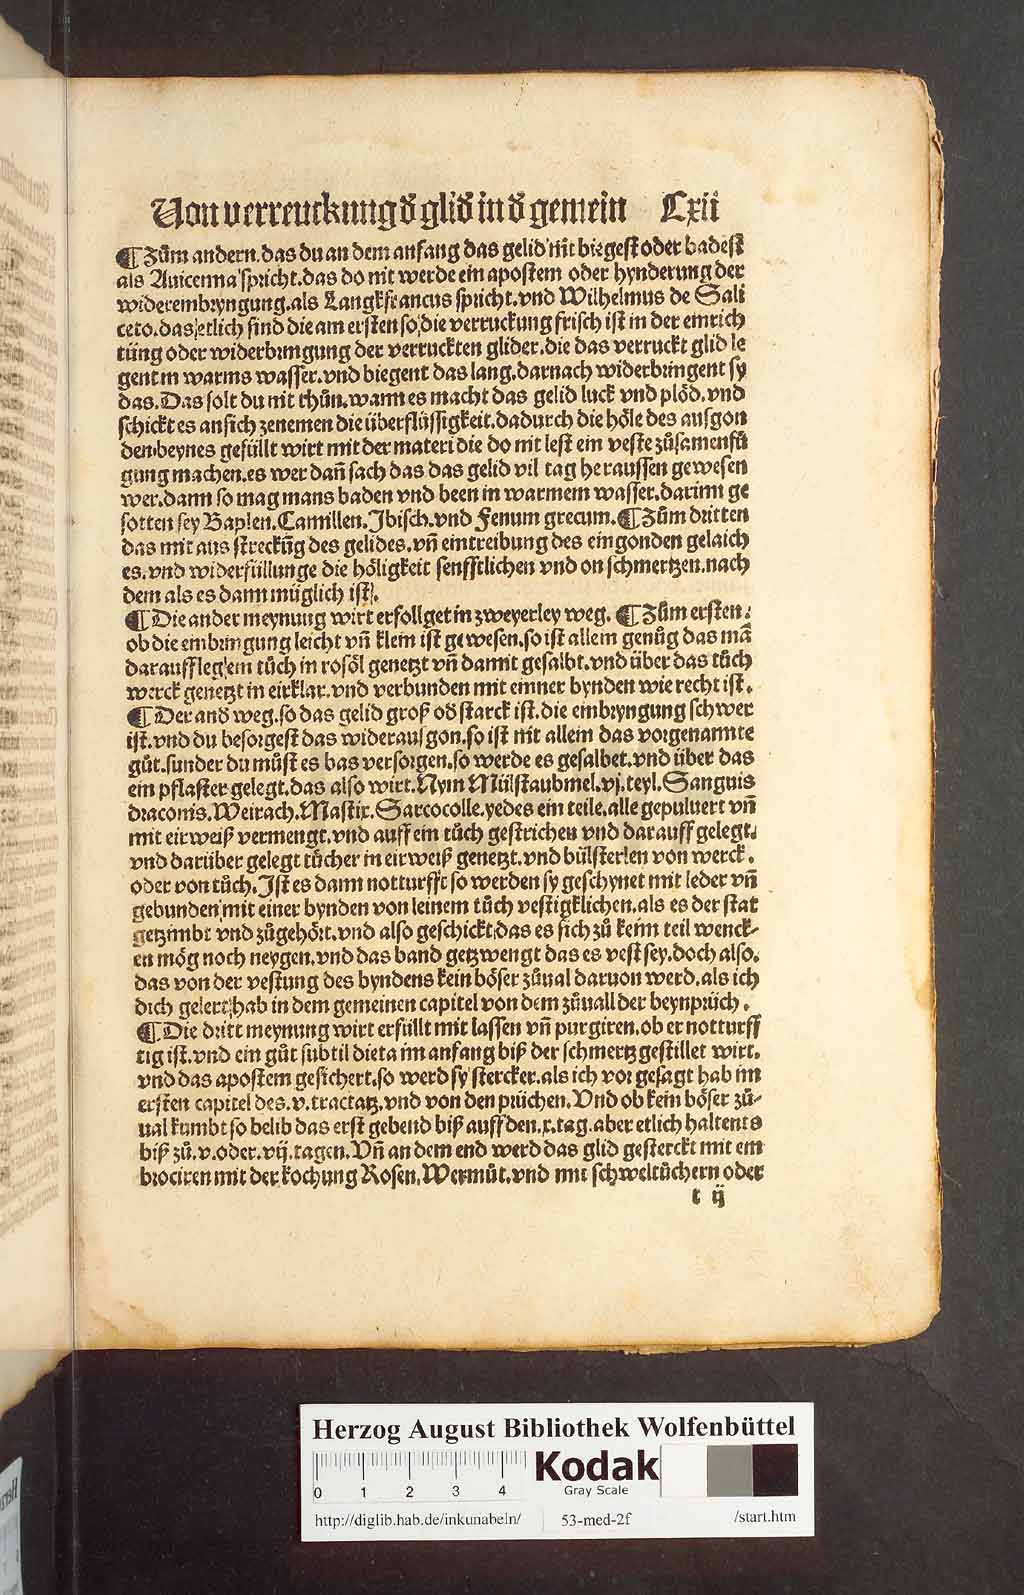 Von verreuckung ð glið in ð gemein Cxii
¶ Zům andern. das du an dem anfang das gelid nit biegest oder badest
als Auicenna spricht. das do nit werde ein apostem oder hynderung der
widerembryngung. als Langkfrancus spricht. vnd Wilhelmus de Sali
ceto. das etlich sind die am ersten so die verruckung frisch ist in der einrich
tüng oder widerbringung der verruckten glider. die das verruckt glid le
gent in warms wasser. vnd biegent das lang. darnach widerbringent sy
das. Das solt du nit thůn. wann es macht das gelid luck vnd plöd. vnd
schickt es an sich zenemen die überflüssigkeit. dadurch die höle des aufgon
den beynes gefüllt wirt mit der materi die do nit lest ein veste zůsamenfů
gung machen. es wer dañ sach das das gelid vil tag heraussen gewesen
wer. dann so mag mans baden vnd been in warmem wasser. darinn ge
sotten sey Baplen. Camillen. Jbisch. vnd Fenum grecum. ¶ Zům dritten
das mit aus streckũg des gelides. vñ eintreibung des eingonden gelaich
es. vnd widerfüllunge die höligkeit senfftlichen vnd on schmertzen. nach
dem als es dann müglich ist.
¶ Die ander meynung wirt erfollget in zweyerley weg. ¶ Zům ersten.
ob die embringung leicht vñ klein ist gewesen. so ist allein genůg das mã
darauff leg ein tůch in rosöl genetzt vñ damit gesalbt. vnd über das tůch
werck genetzt in eirklar. vnd verbunden mit einner bynden wie recht ist.
¶ Der and weg. so das gelid groß oð starck ist. die embryngung schwer
ist. vnd du besorgest das widerausgon. so ist nit allein das vorgenannte
gůt. sunder du můst es bas versorgen. so werde es gesalbet. vnd über das
ein pflaster gelegt. das also wirt. Nym Mülstaubmel. vj. teyl. Sanguis
draconis. Weirach. Mastix. Sarcocolle. yedes ein teile. alle gepulvert vñ
mit eirweiß vermengt. vnd auff ein tůch gestrichen vnd darauff gelegt.
vnd darüber gelegt tücher in eirweiß genetzt. vnd bülsterlen von werck.
oder von tůch. Ist es dann notturfft so werden sy geschynet mit leder vñ
gebunden mit einer bynden von leinem tůch vestigklichen. als es der stat
getzimbt vnd zůgehört. vnd also geschickt das es sich zů keim teil wenck-
en mög noch neygen. vnd das band getzwengt das es vest sey. doch also.
das von der vestung des byndens kein böser zůual daruon werd. als ich
dich gelert hab in dem gemeinen capitel von dem zůuall der beynprüch.
¶ Die dritt meynung wirt erfüllt mit lassen vñ purgiren. ob er notturff
tig ist. vnd ein gůt subtil dieta im anfang biß der schmertz gestillet wirt.
vnd das apostem gesichert. so werd sy stercker. als ich vor gesagt hab im
ersten capitel des. v. tractatz. vnd von den prüchen. Vnd ob kein böser zů-
ual kumbt so belib das erst gebend biß auff den. x. tag. aber etlich haltent s
biß zů. v. oder. vij. tagen. Vñ an dem end werd das glid gesterckt mit em
brociren mit der kochung Rosen. Wermůt. vnd mit schweltůchern oder
t ij
Herzog August Bibliothek Wolfenbüttel
0 1 2 3 4
Kodak
Gray Scale
http://diglib.hab.de/inkunabeln/ 53-med-2f /start.htm